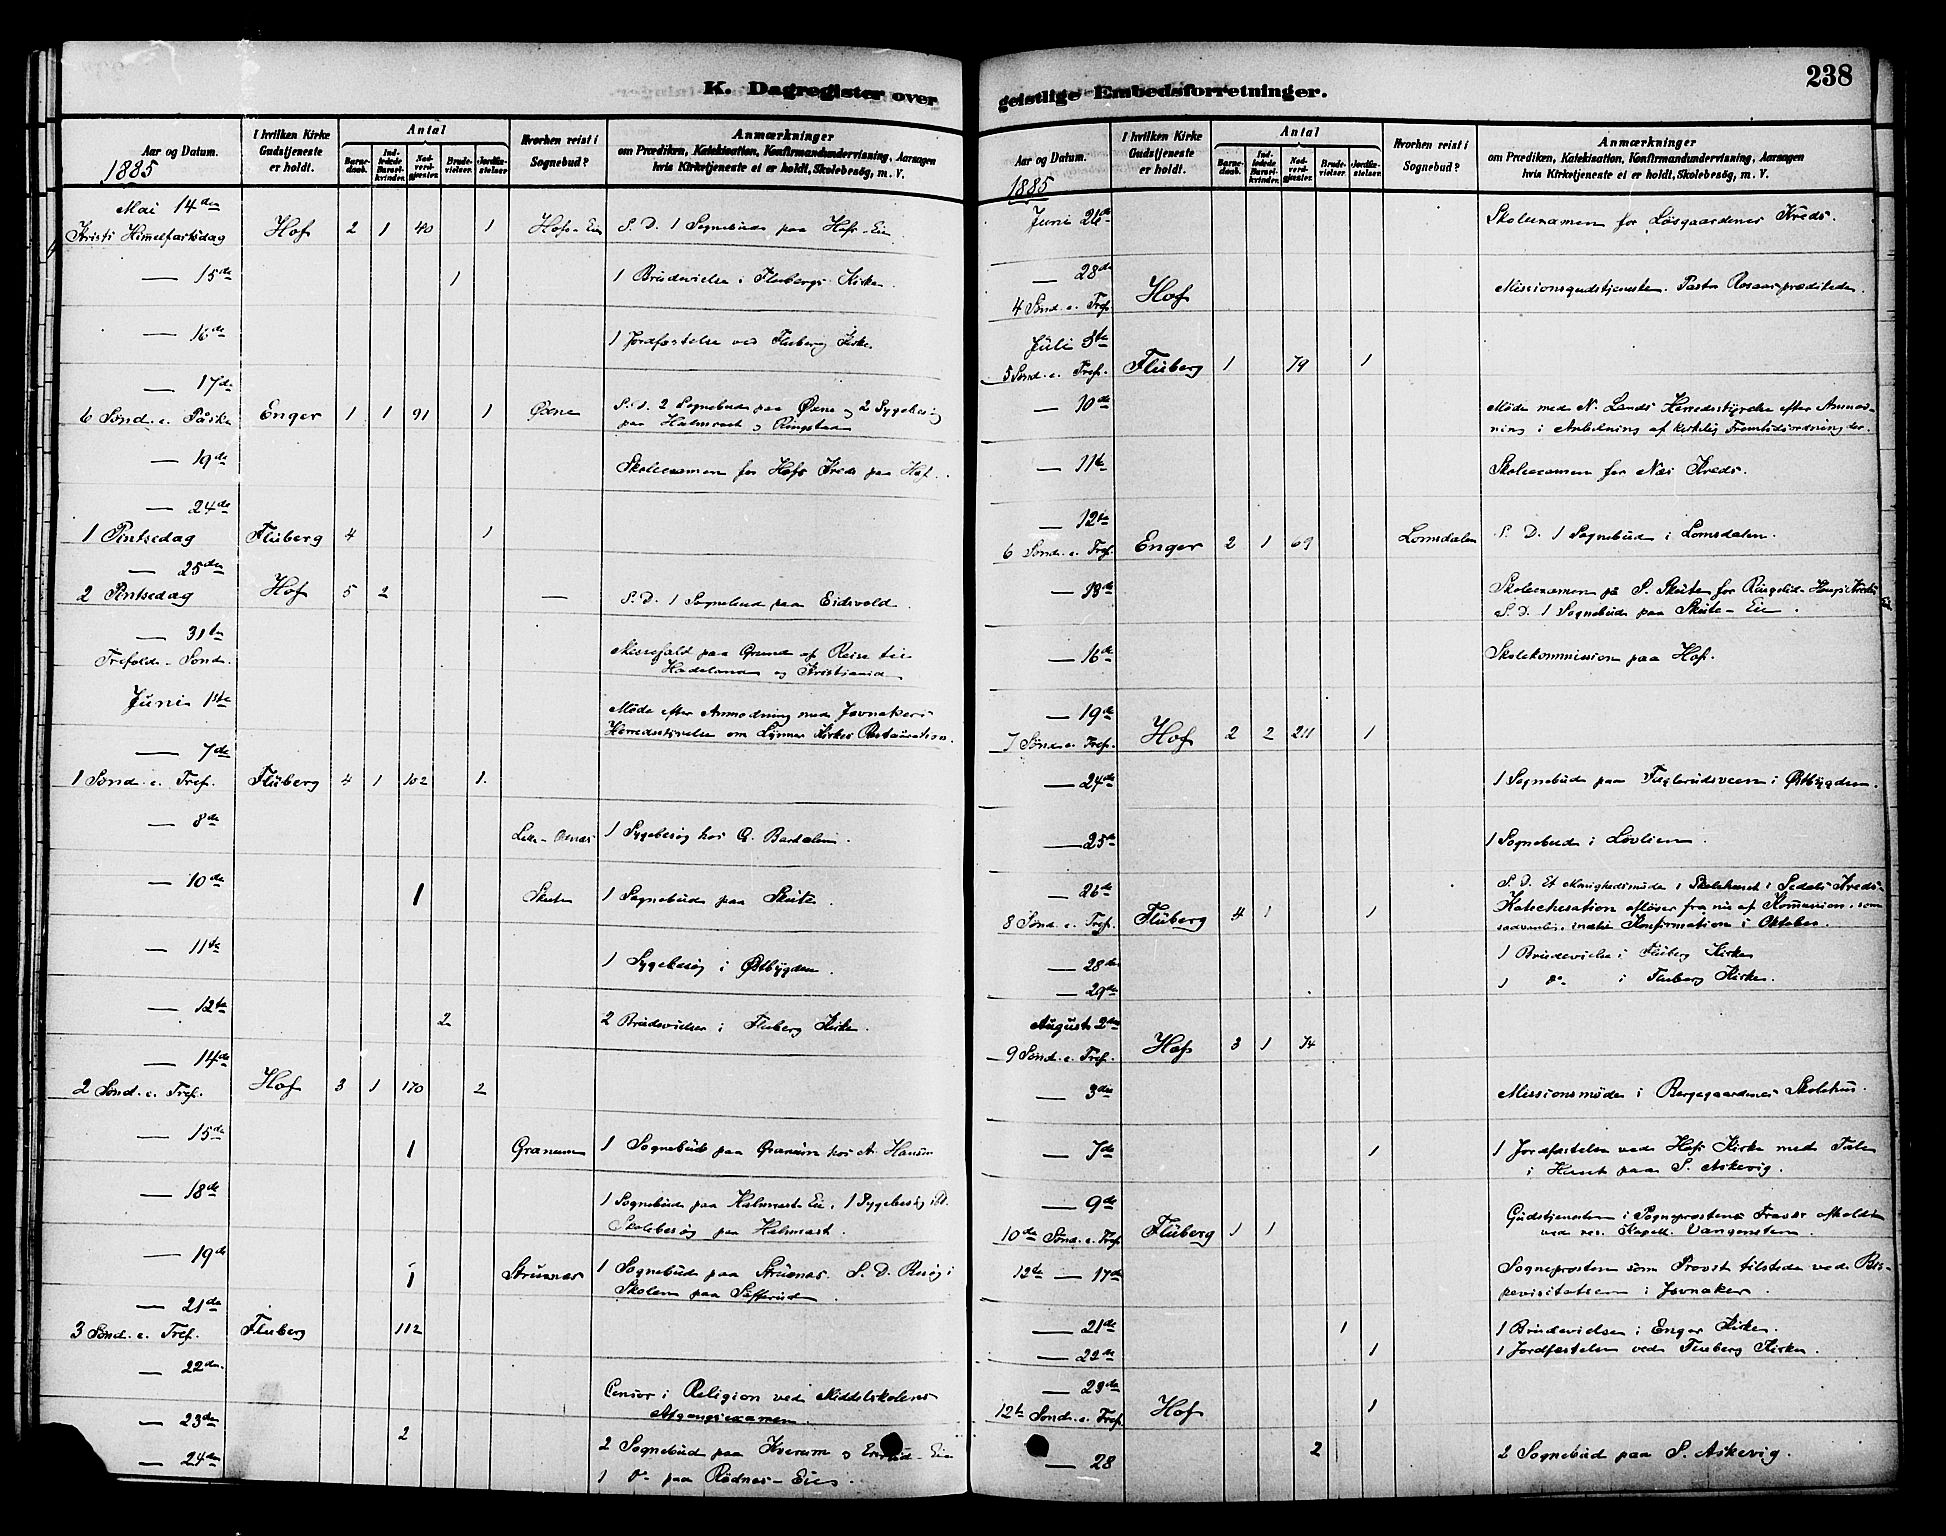 K. Dagregister over
Aar og Datum.
1885
I hvilken Kirke Gudstjeneste er holdt.
Antal
Barnedaab.
Indledede Barselkvinder.
Nadverdgjester.
Brudevielser.
Jordfæstelser.
Hvorhen reist i Sognebud?
Anmærkninger
om Prædiken, Katekisation, Konfirmandundervisning, Aarsagen
hvis Kirketjeneste ei er holdt, Skolebesøg, m. V.
Mai 14de
Kristi Himmelfartsdag Hof 2 1 40 1 Hofs-Eie S. D. 1 Sognebud paa Hofs-Eie
— 15de 1 1 Brudevielse i Flubergs Kirke.
— 16de 1 Jordfæstelse ved Fluberg Kirke.
— 17de
6 Sønd. e. Påske Enger 1 1 91 1 Øxne S. D. 2 Sognebud paa Øxne og 2 Sygebesøg
paa Halmrast og Ringstad
— 19de Skoleexamen for Hofs Kreds paa Hof.
— 24de
1 Pintsedag Fluberg 4 1
— 25de
2 Pintsedag Hof 5 2 — S. D. 1 Sognebud paa Eidsvold.
— 31te
Trefold. Sønd. Messefald paa Grund af Reise til
Hadeland og Kristiania
Juni 1ste Møde efter Anmodning med Jevnakers
Herredsstyrelse om Lunner Kirkes Restauration.
— 7de
1 Sønd. e. Tref. Fluberg 4 1 102 1.
— 8de Lille-Odnæs 1 Sygebesøg hos G. Bardalen.
— 10de 1 Skute 1 Sognebud paa Skute.
— 11te 1 Sygebesøg i Østbygden.
— 12te 2 2 Brudevielser i Fluberg Kirke.
— 14de
2 Sønd. e. Tref. Hof 3 1 170 2
— 15de 1 Granum 1 Sognebud paa Granum hos A. Hansen
— 18de 1 Sognebud paa Halmrast Eie. 1 Sygebesøg
Skolebesøg paa Halmrast.
— 19de 1 Strusnæs 1 Sognebud paa Strusnæs. S. D. Besøg i
Skolen paa Sæfferud.
— 21de
3 Sønd. e. Tref. Fluberg 112
— 22de. Censor i Religion ved Middelskolens
Afgangsexamen.
— 23de 2 2 Sognebud paa Kverum og Eie
— 24de 1 do paa Rødnes-Eie.
geistlige Embedsforretninger.
238
Aar og Datum.
1885
I hvilken Kirke Gudstjeneste er holdt.
Antal
Barnedaab.
Indledede Barselkvinder.
Nadverdgjester.
Brudevielser.
Jordfæstelser.
Hvorhen reist i Sognebud?
Anmærkninger
om Prædiken, Katekisation, Konfirmandundervisning, Aarsagen
hvis Kirketjeneste ei er holdt, Skolebesøg, m. V.
Juni 26de Skoleexamen for Løsgaardenes Kreds.
— 28de
4 Sønd. e. Tref. Hof Missionsgudstjeneste. Pastor Rosaas prædikede.
Juli
5 Sønd. e. Tref. Fluberg 1 79 1
— 10de Møde med N. Lands Herredsstyrelse efter Anmodning
i Anledning af kirkelig Fremtidsordning der.
— 11te Skoleexamen for Næs Kreds.
— 12te
6 Sønd. e. Tref. Enger 2 1 69 Lomsdalen S. D. 1 Sognebud i Lomsdalen.
Skoleexamen på S. Skute for Ringelid-Kreds
S. D. 1 Sognebud paa Skute-Eie.
— 16de Skolekommission paa Hof.
— 19de
7 Sønd. e. Tref. Hof 2 2 211 1
— 24de 1 Sognebud paa Fuglerudsveen i Østbygden.
— 25de 1 Sognebud i Løvlien.
— 26de S. D. Et Menighedsmøde i Skolehuset i Sedals Kreds.
8 Sønd. e. Tref. Fluberg 4 1 1 Katechesation afløser fra nu af Kommunion, som
sædvanlig, indtil Konfirmation i Oktober.
— 28de 1 Brudevielse i Fluberg Kirke
— 29de 1 do i Fluberg Kirke.
August 2den
9 Sønd. e. Tref. Hof 3 1 74
— 3die Missionsmøde i Bergegaardenes Skolehus.
— 7de 1 1 Jordfæstelse ved Hofs Kirke med Tale
i Huset paa S. Askevig.
— 9de
10de Sønd. e. Tref. Fluberg 1 1 Gudstjenesten i Sogneprestens Fravær afholdt
ved res. Kapell. Vangensten.
12te — 17de Sognepresten som Provst tilstede ved Bispevisitatsen
i Jevnaker.
— 21de 1 1 Brudevielse i Enger Kirke.
— 22de 1 1 Jordfæstelse ved Fluberg Kirke.
— 23de
12te Sønd. e. Tref. Hof 1
— 28 2 2 Sognebud paa S. Askevig.